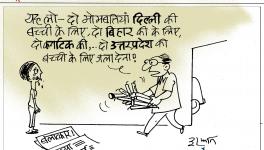 यह लो- दो मोमबत्तियाँ दिल्ली की
बच्ची के लिए, दो बिहार की के लिए,
दो कर्नाटक की,... दो उत्तरप्रदेश की
बच्ची के लिए जला देना!
बलात्कार